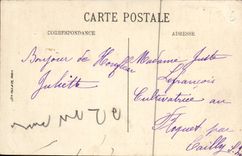 CARTE POSTALE
CORRESPONDANCE
ADRESSE
Bonjour de Honfleur
Juliette
Madame Juste
Lefrançois
Cultivatrice au
Floquet par
Cailly